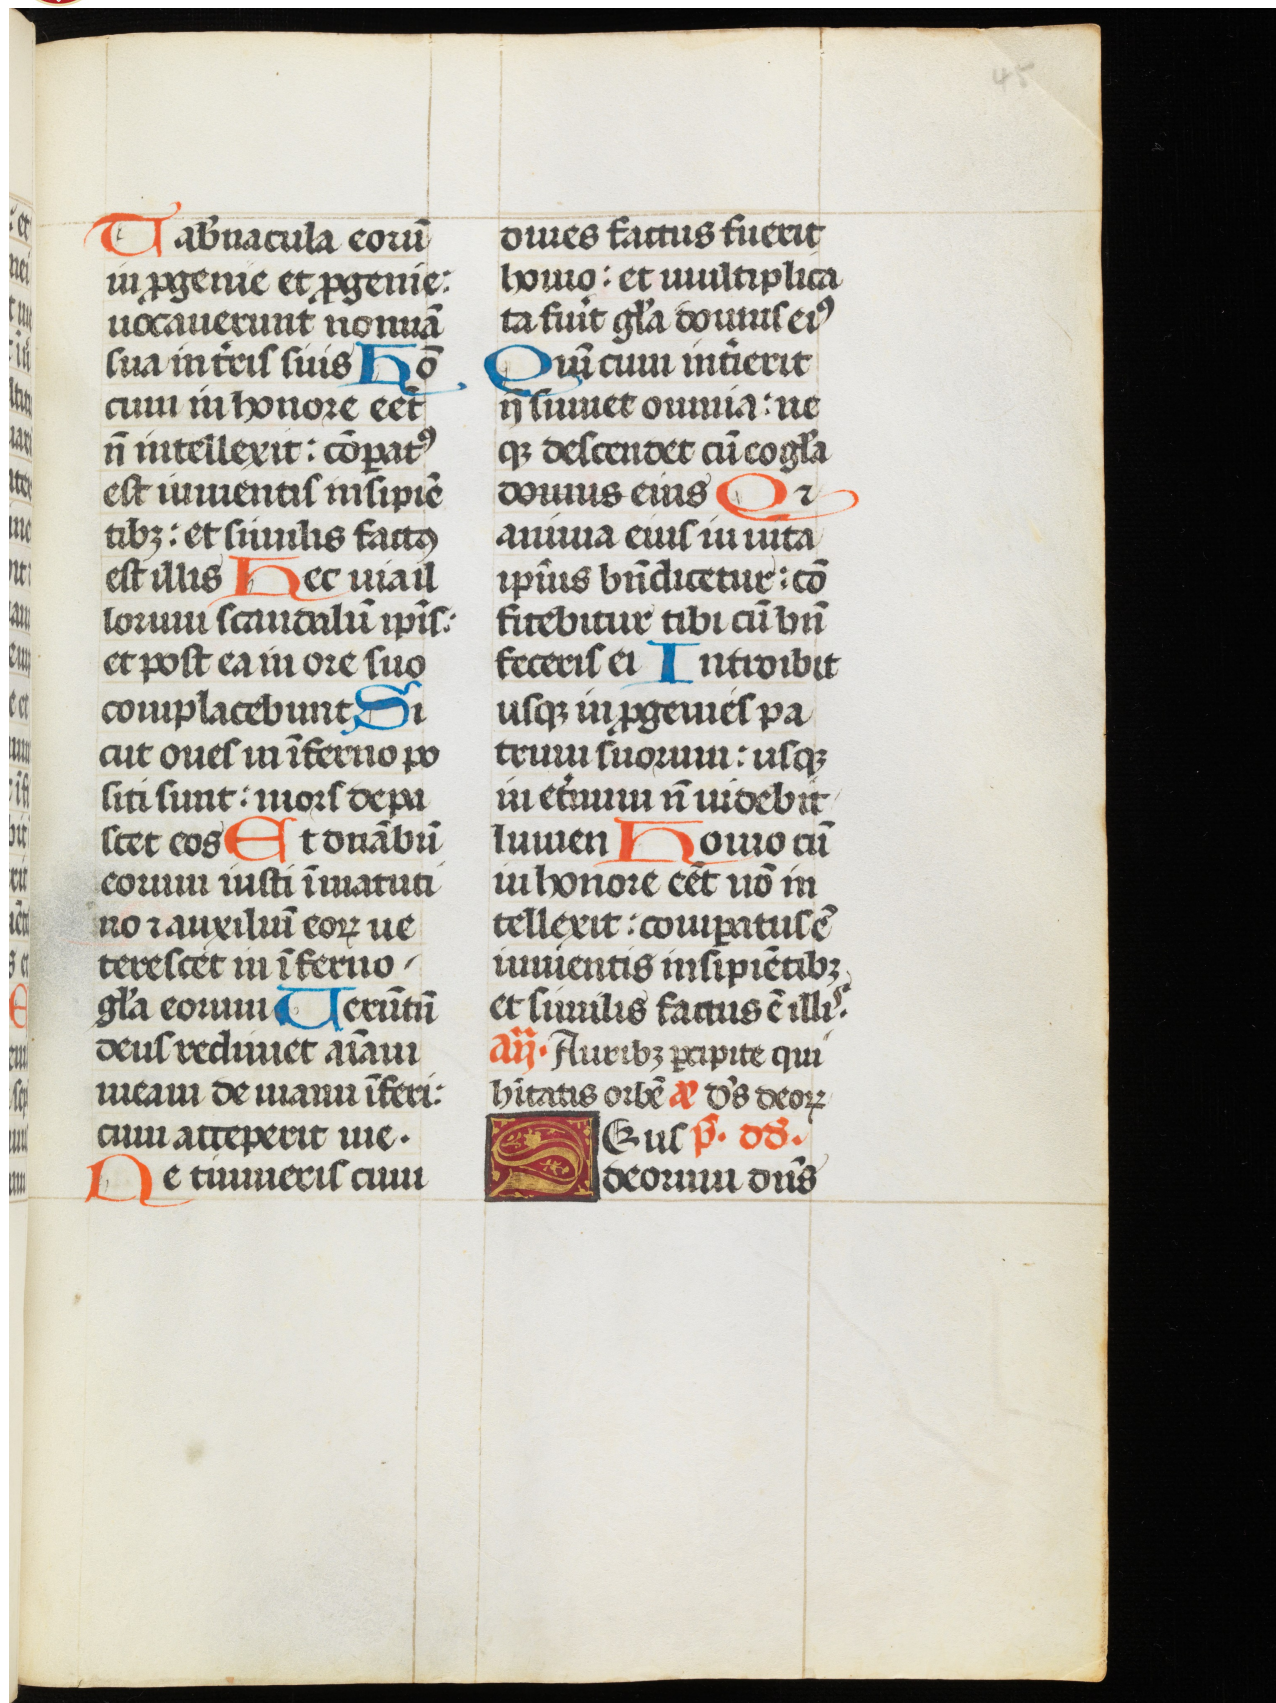 45
Tab̉nacula eoru᷑
in ꝓgenie et ꝓgenie:
uocauerunt no᷑nuã
sua in tr̃is suis Hõ
cum in honore eēt
n̄ intellexit: cõꝑatꝰ
est iumentis insipiẽ
tibꝫ: et similis factꝰ
est illis Hec uia il
lorum scandalũ ip̃is:
et post ea in ore suo
complacebunt Si
cut oues in ĩferno po
siti sunt: mors depa
scet eos Et dnãbũt
eorum iusti ĩ matuti
no ⁊ auxiliũ eoꝝ ue
terescet in ĩferno
gl̃a eorum Uerũtñ
deus redimet aĩam
meam de manu ĩferi:
cum acceperit me.
Ne timueris cum
diues factus fuerit
homo: et multiplica
ta fuĩt gl̃a domus eiꝰ
Qm̃ cum inĩierit
n̄ sumet omnia: ne
qꝫ descendet cũ eo gl̃a
domus eius Qꝛ
anima eius in uita
ipĩus bñdicetur: cõ
fitebitur tibi cũ bñ
feceris ei Introibit
usqꝫ in ꝓgenies pa
trum suorum: usqꝫ
in et̉num n̄ uidebit
lumen Homo cũ
in honore eēt nõ in
tellexit: comꝑatus ẽ
iumentis insipiẽtibꝫ
et similis factus ẽ illis.
añ. Auribꝫ ꝑcipite qui
hĩtatis orbẽ a᷑ dˀs deoꝝ
DEus p̃. dð.
deorum dñs